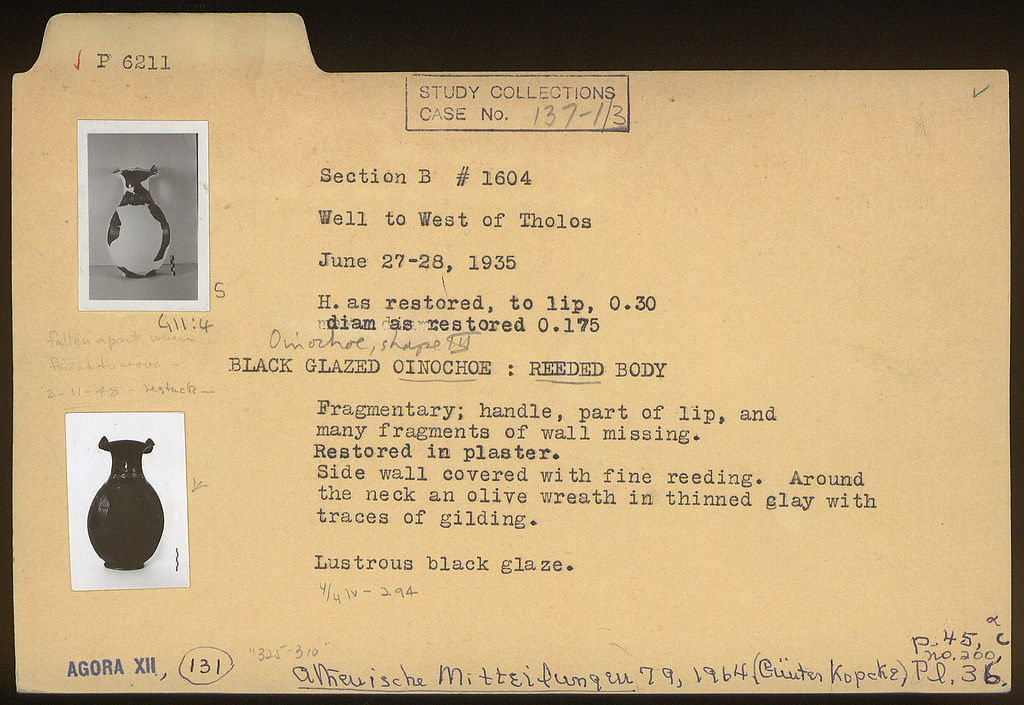 ✓ P 6211
STUDY COLLECTIONS
CASE No. 137-1/3
Section B # 1604
Well to West of Tholos
June 27-28, 1935
H. as restored, to lip, 0.30
diam as restored 0.175
S
G11:4
Oinochoe, shape III
fallen apart when
2-11-48 - restuck -
BLACK GLAZED OINOCHOE : REEDED BODY
Fragmentary; handle, part of lip, and
many fragments of wall missing.
Restored in plaster.
Side wall covered with fine reeding. Around
the neck an olive wreath in thinned glay with
traces of gilding.
Lustrous black glaze.
4/4 IV - 294
AGORA XII, 131
"325-310"
Athenische Mitteilungen 79, 1964 (Günter Kopcke)
p. 45, c
no. 200,
Pl. 36.